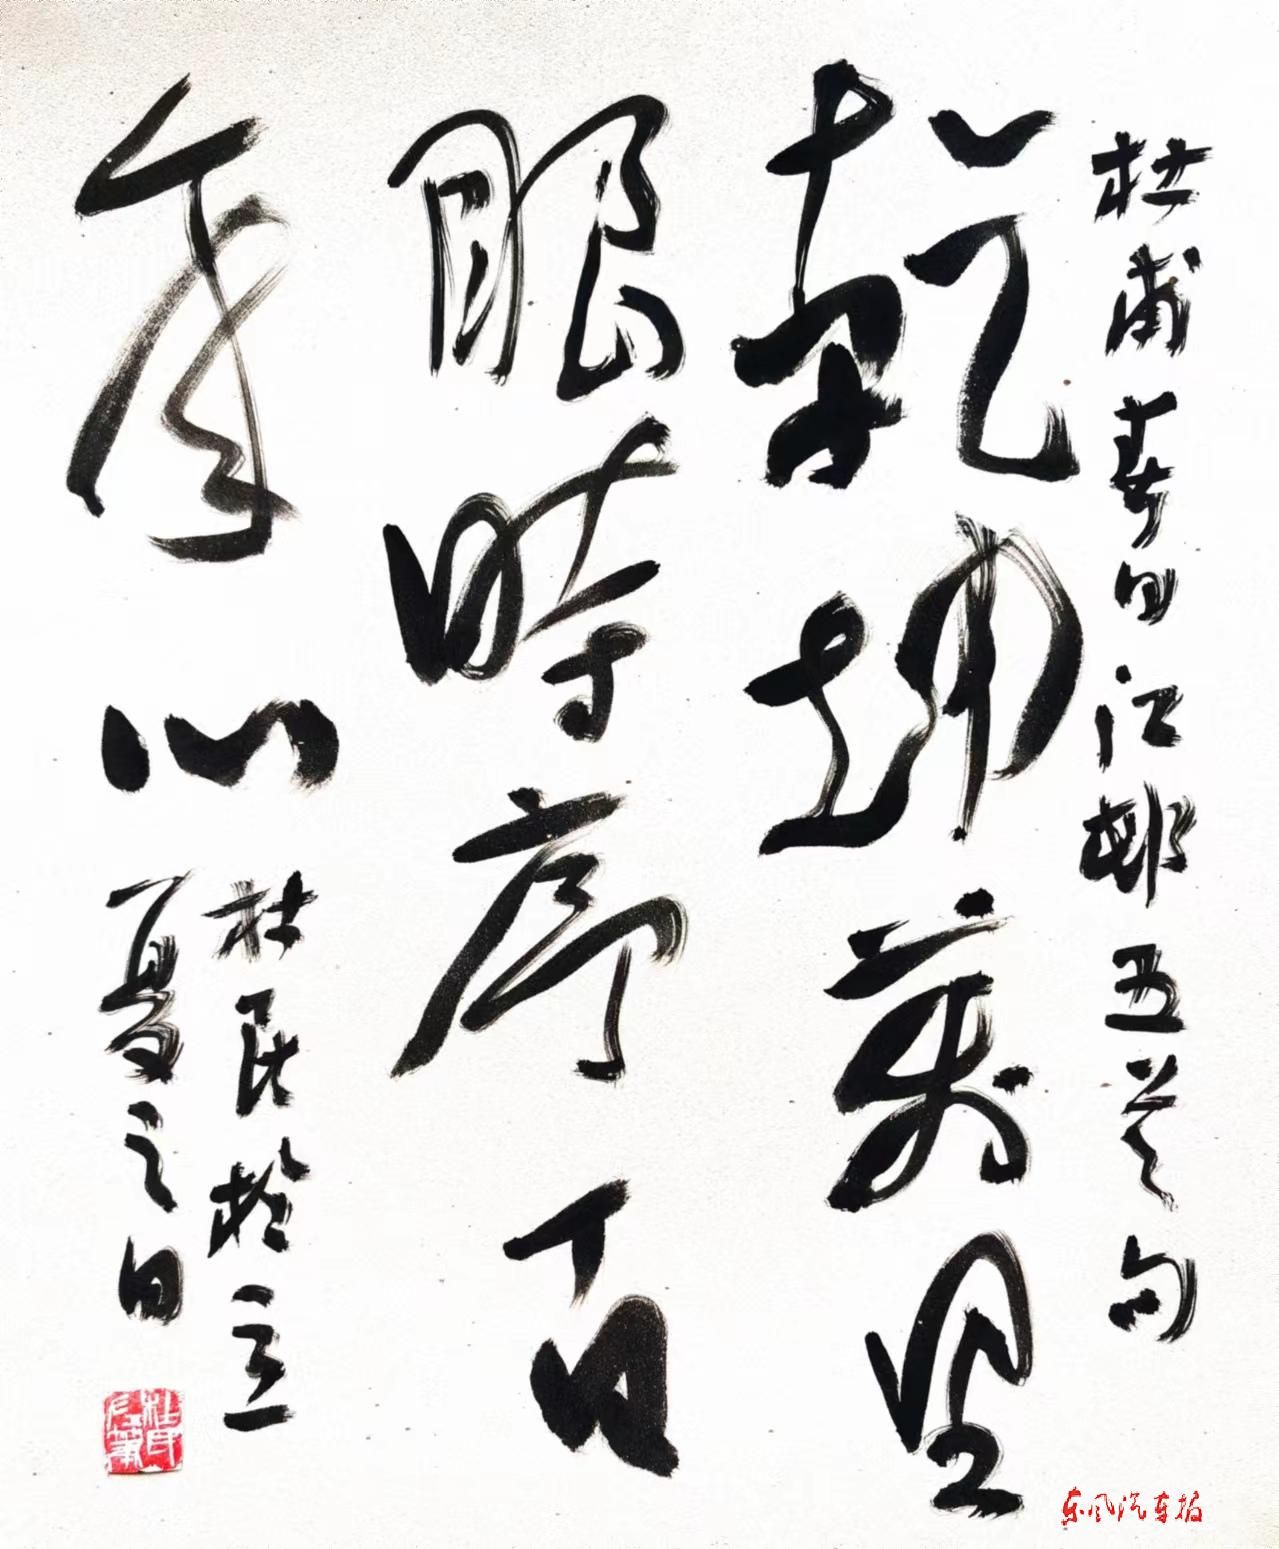 杜甫春日江邨五首之一句
乾坤萬里
眼時序百
年心
杜民於立
夏之日
东风汽车报